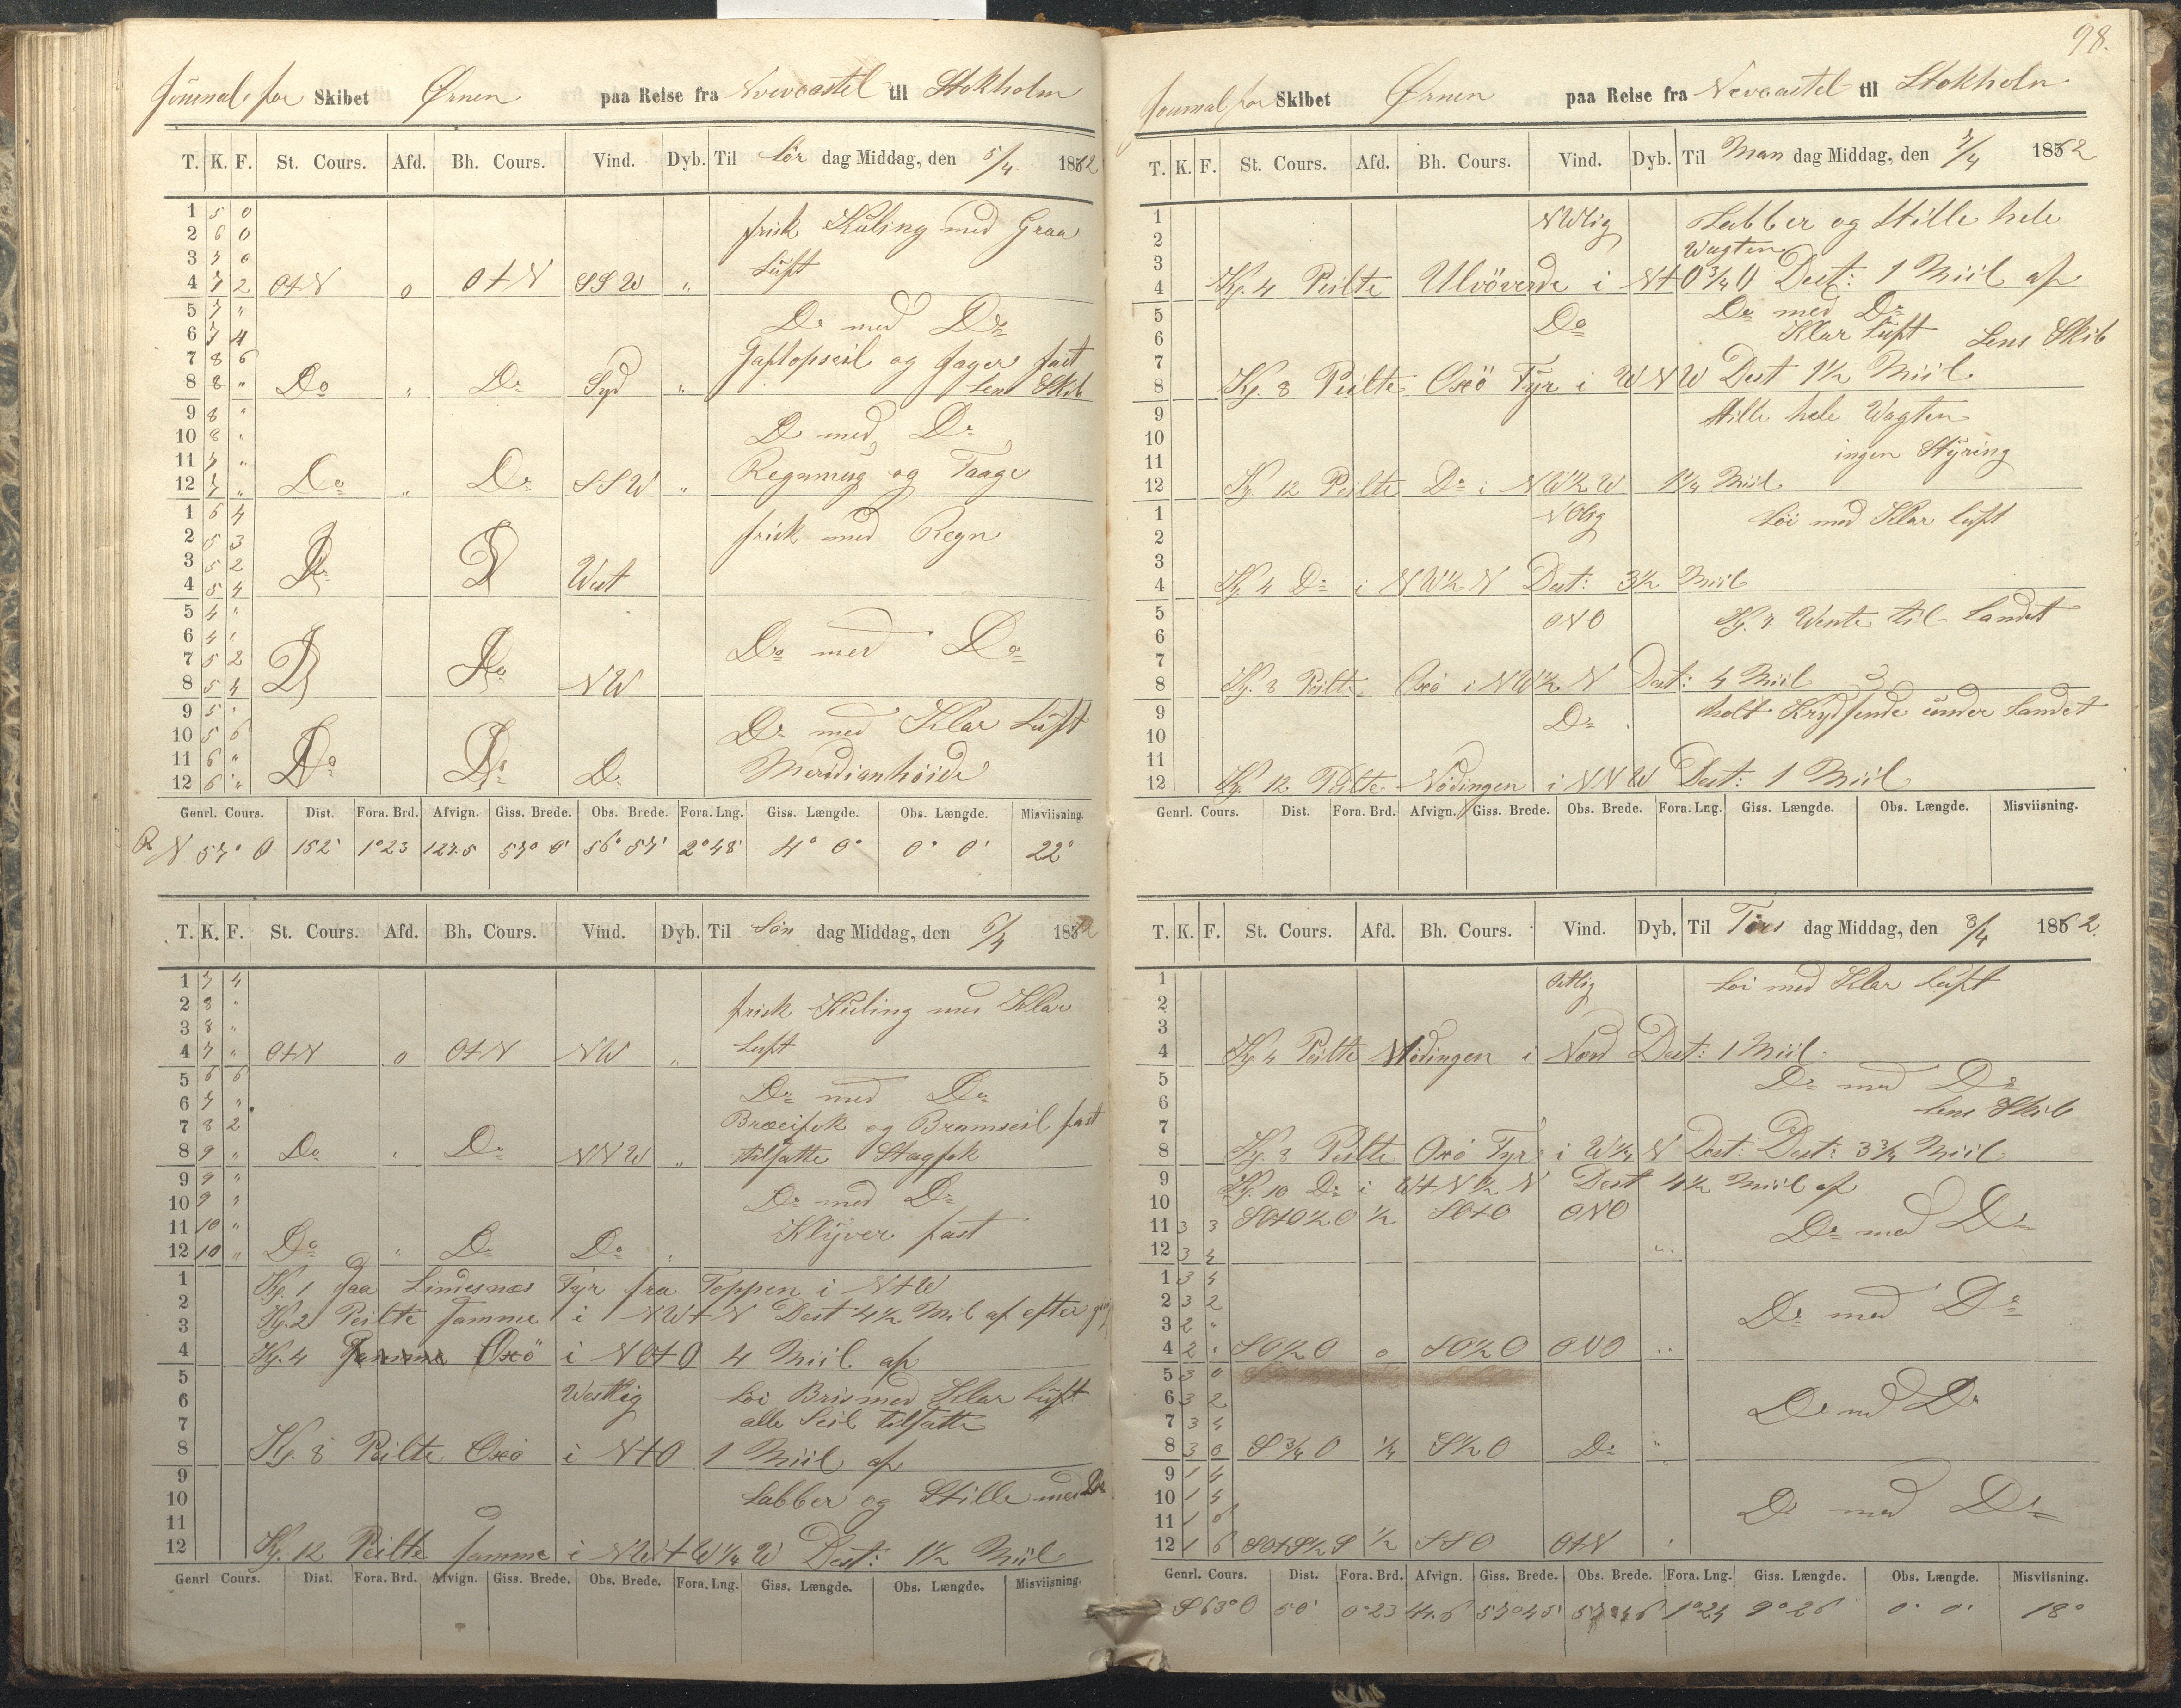 98.
Journal for Skibet Ørnen paa Reise fra Nevcastel til Stokholm
T. K. F. St. Cours. Afd. Bh. Cours. Vind. Dyb. Til Lör dag Middag, den 5/4 1862
1 5 0 frisk Kuling med Graa
2 6 0
3 7 0 Luft
4 7 2 OtN 0 OtN SSW "
5 7 " Do med Do
6 7 4
7 8 6 Gaftopseil og Jager fast
8 8 " Do " Do Syd " Lens Skib
9 8 "
10 8 " Do med Do
11 7 " Regnmug og Taage
12 7 " Do " Do SSW "
1 6 4 frisk med Regn
2 5 3
3 5 2
4 5 4 Do Do West
5 4 "
6 4 " Do med Do
7 5 2
8 5 4 Do Do NW
9 5 "
10 5 6 Do med Klar Luft
11 6 "
12 6 " Do Do Do Meridianhöide
Genrl. Cours. Dist. Fora. Brd. Afvign. Giss. Brede. Obs. Brede. Fora. Lng. Giss. Længde. Obs. Længde. Misviisning.
R N 57° O 152' 1°23 127.5 57° 0' 56° 57' 2°48' 4° 0° 0° 0' 22°
T. K. F. St. Cours. Afd. Bh. Cours. Vind. Dyb. Til Sön dag Middag, den 6/4 1862
1 7 4
2 8 " frisk Kuling med Klar
3 8 "
4 7 " OtN 0 OtN NW " Luft
5 6 6
6 7 " Do med Do
7 8 2 Bræifok og Bramseil fast
8 9 " Do " Do NNW " tilsatte Stagfok
9 9 "
10 9 " Do med Do
11 10 " Klyver fast
12 10 " Do " Do Do "
1 Kg. 1 saa Lindesnæs Fyr fra Toppen i NtW
2 Kg. 2 Peilte samme i NWtN Dest 4½ Mil af efter
3
4 Kg. 4 Oxö i NOtO 4 Miil af
5
6 Westlig Löi Bris med Klar Luft
7 alle Seil tilsatte
8 Kg. 8 Peilte Oxö i NtO 1 Miil af
9
10 Labber og Stille med Do
11
12 Kg. 12 Peilte samme i NWtW¼W Dest: 1½ Miil
Genrl Cours. Dist. Fora. Brd. Afvign. Giss. Brede. Obs. Brede. Fora. Lng. Giss. Længde. Obs. Længde. Misviisning.
Journal for Skibet Ørnen paa Reise fra Nevcastel til Stokholm
T. K. F. St. Cours. Afd. Bh. Cours. Vind. Dyb. Til Man dag Middag, den 7/4 1862
1 NWlig Labber og Stille hele
2 Wagten
3
4 Kg. 4 Peilte Ulvöverde i NtO¾O Dest: 1 Miil af
5 Do med Do
6 Do Klar Luft Lens Skib
7
8 Kg. 8 Peilte Oxö Fyr i WNW Dest 1½ Miil
9 Stille hele Wagten
10
11 ingen Styring
12 Kg. 12 Peilte Do i NW½W 1¼ Miil
1 NOlig Löi med Klar luft
2
3
4 Kg. 4 Do i NW½N Dest: 3½ Miil
5 ONO Kg. 7 Wente til Landet
6
7
8 Kg. 8 Peilte Oxö i NW½N Dest: 4 Miil
9 Do holt Krydsende under Landet
10
11
12 Kg. 12 Peilte Nödingen i NNW Dest: 1 Miil
Genrl. Cours. Dist. Fora. Brd. Afvign. Giss. Brede. Obs. Brede. Fora. Lng. Giss. Længde. Obs. Længde. Misviisning.
T. K. F. St. Cours. Afd. Bh. Cours. Vind. Dyb. Til Tirs dag Middag, den 8/4 1862.
1 Ostlig Löi med Klar Luft
2
3
4 Kg. 4 Peilte Nödingen i Nord Dest: 1 Miil
5 Do med Do
6 Lens Skib
7
8 Kg. 8 Peilte Oxö Fyr i W¼N Dest: Dest: 3¾ Miil
9 Kg. 10 Do i WtN½N Dest 4½ Miil af
10
11 3 3 SOtO½O ½ SOtO ONO Do med Do
12 3 4 "
1 3 4
2 3 2 Do med Do
3 2 "
4 2 " SO½O 0 SO½O ONO "
5 3 0
6 3 2 Do med Do
7 3 4
8 3 0 S¾O ¼ S½O Do "
9 1 4
10 1 4 Do med Do
11 1 6
12 1 6 SOtS½S ½ SSO OtN "
Genrl. Cours. Dist. Fora. Brd. Afvign. Giss. Brede. Obs. Brede. Fora. Lng. Giss. Længde. Obs. Længde. Misviisning.
S 63° O 50' 0°23 44.6 57°45' 57°46 1°24 9°26 0° 0' 18°